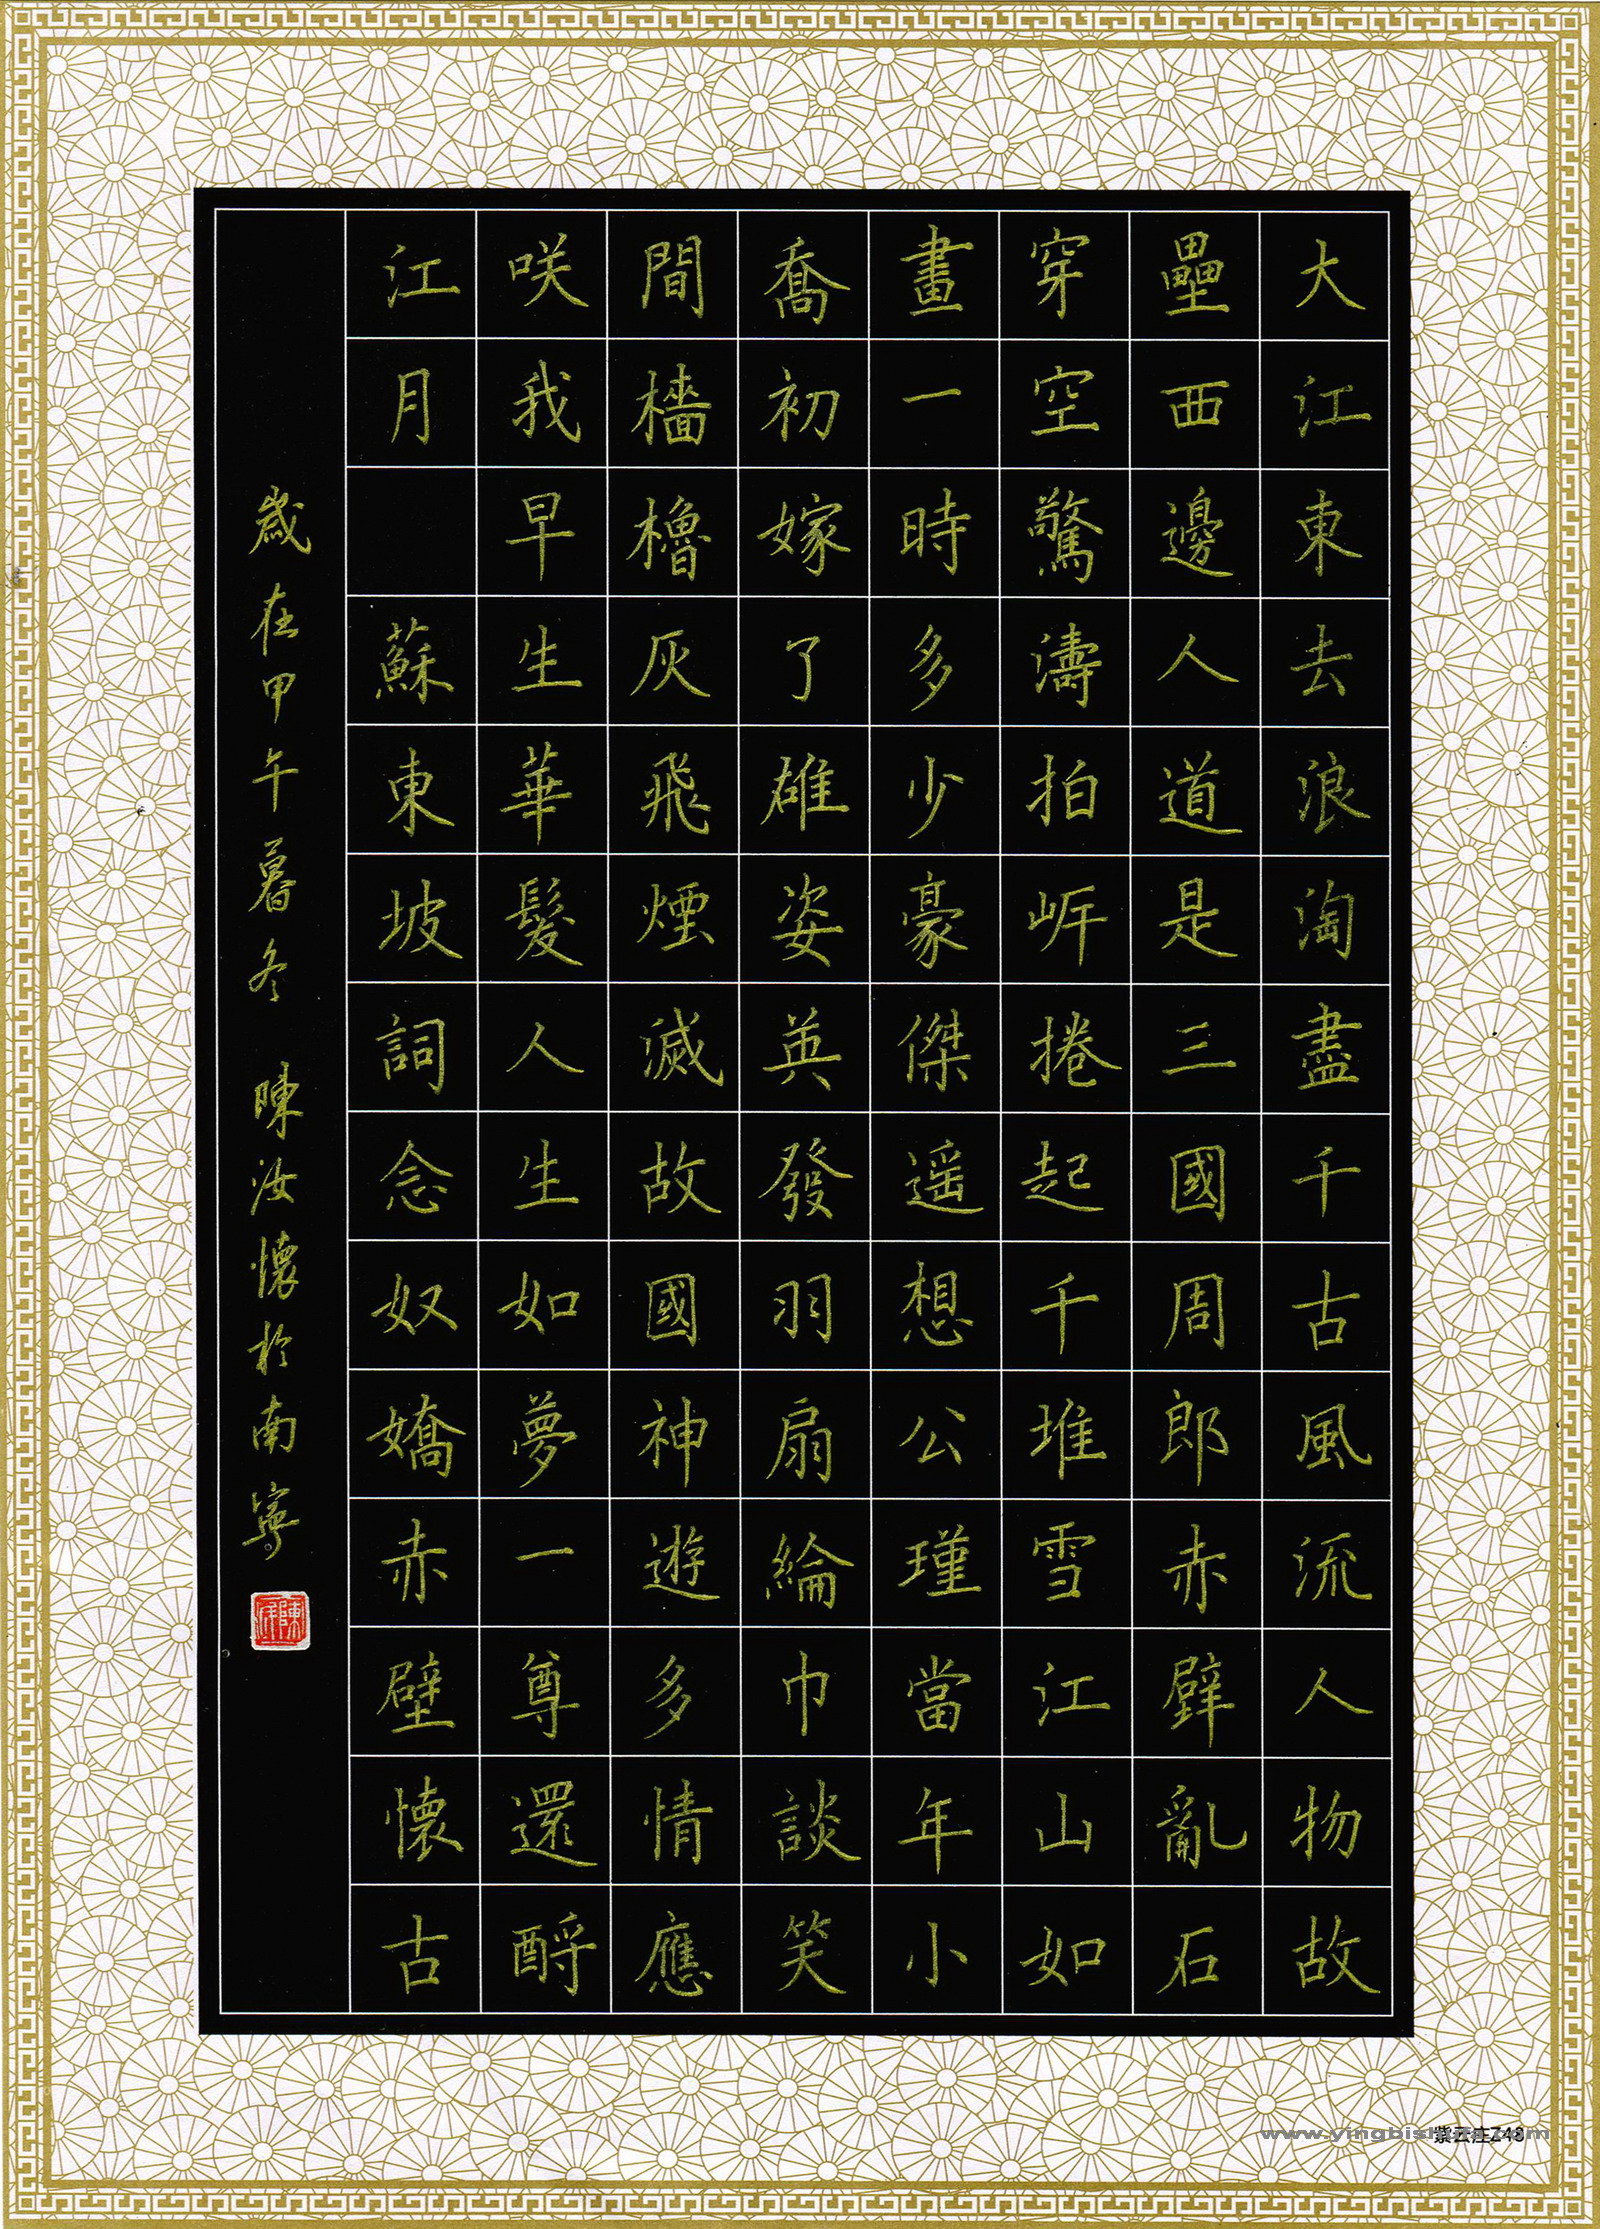 大江東去浪淘盡千古風流人物故
壘西邊人道是三國周郎赤壁亂石
穿空驚濤拍岍捲起千堆雪江山如
畫一時多少豪傑遥想公瑾當年小
喬初嫁了雄姿英發羽扇綸巾談笑
間檣櫓灰飛煙滅故國神遊多情應
咲我早生華髮人生如夢一尊還酹
江月 蘇東坡詞念奴嬌赤壁懷古
歲在甲午暮冬 陳汝懷於南寧
www.yingbishufa.com